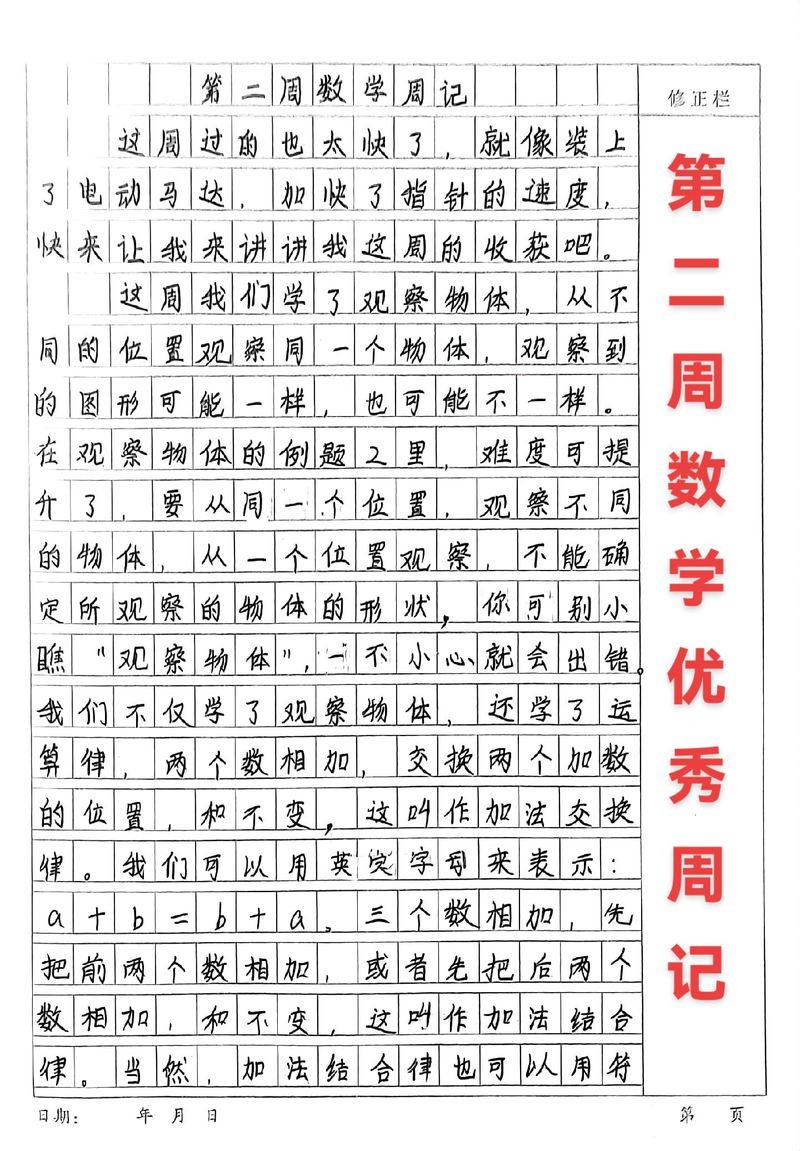 第二周数学周记
修正栏
这周过的也太快了，就像装上
了电动马达，加快了指针的速度，
快来让我来讲讲我这周的收获吧。
这周我们学了观察物体，从不
同的位置观察同一个物体，观察到
的图形可能一样，也可能不一样。
在观察物体的例题2里，难度可提
升了，要从同一个位置，观察不同
的物体，从一个位置观察，不能确
定所观察的物体的形状，你可别小
瞧“观察物体”，一不小心就会出错。
我们不仅学了观察物体，还学了运
算律，两个数相加，交换两个加数
的位置，和不变，这叫作加法交换
律。我们可以用英文字母来表示：
a+b=b+a。三个数相加，先
把前两个数相加，或者先把后两个
数相加，和不变，这叫作加法结合
律。当然，加法结合律也可以用符
日期： 年 月 日
第 页
第二周数学优秀周记